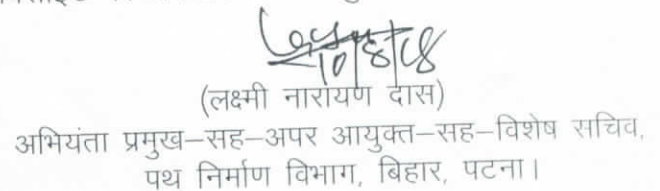 10/8/18
(लक्ष्मी नारायण दास)
अभियंता प्रमुख–सह–अपर आयुक्त–सह–विशेष सचिव,
पथ निर्माण विभाग, बिहार, पटना।